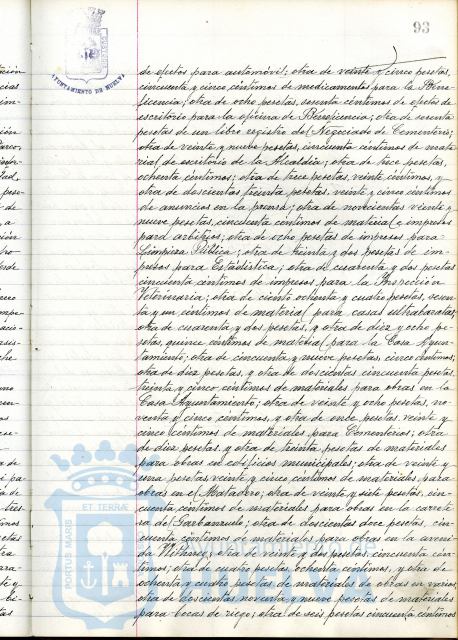 93
AYUNTAMIENTO DE HUELVA
de efectos para automóvil; otra de veinte y cinco pesetas,
cincuenta y cinco céntimos de medicamentos para la Bene-
ficencia; otra de ocho pesetas, sesenta céntimos de efectos de
escritorio para la oficina de Beneficencia; otra de sesenta
pesetas de un libro registro del Negociado de Cementerio;
otra de veinte y nueve pesetas, cincuenta céntimos de mate-
rial de escritorio de la Alcaldía; otra de tece pesetas,
ochenta céntimos; otra de trece pesetas, veinte céntimos, y
otra de doscientas treinta pesetas, veinte y cinco céntimos
de anuncios en la prensa; otra de novecientas veinte y
nueve pesetas, cincuenta céntimos de material e impresos
para arbitrios; otra de ocho pesetas de impresos para
Limpieza Pública; otra de treinta y dos pesetas de im-
presos para Estadística; otra de cuarenta y dos pesetas
cincuenta céntimos de impresos para la Inspección
Veterinaria; otra de ciento ochenta y cuatro pesetas, sesen-
ta y un céntimos de material para casas ultrabaratas;
otra de cuarenta y dos pesetas, y otra de diez y ocho pe-
setas, quince céntimos de material para la Casa Ayun-
tamiento; otra de cincuenta y nueve pesetas, cinco céntimos;
otra de diez pesetas, y otra de doscientas cincuenta pesetas,
treinta y cinco céntimos de materiales para obras en la
Casa Ayuntamiento; otra de veinte y ocho pesetas, no-
venta y cinco céntimos, y otra de once pesetas veinte y
cinco céntimos de materiales para Cementerios; otra
de diez pesetas, y otra de treinta pesetas de materiales
para obras en edificios municipales; otra de veinte y
una pesetas, veinte y cinco céntimos de materiales para
obras en el Matadero; otra de veinte y siete pesetas, cin-
cuenta céntimos de materiales para obras en la carrete-
ra de Garbanzuelo; otra de doscientas doce pesetas, cin-
cuenta céntimos de materiales para obras en la aveni-
da; otra de veinte y dos pesetas cincuenta cén-
timos; otra de cuatro pesetas, ochenta céntimos, y otra de
ochenta y cuatro pesetas de materiales de obras en varios;
otra de doscientas noventa y nueve pesetas de materiales
para bocas de riego; otra de seis pesetas, cincuenta céntimos
PORTUS MARIS
ET TERRÆ